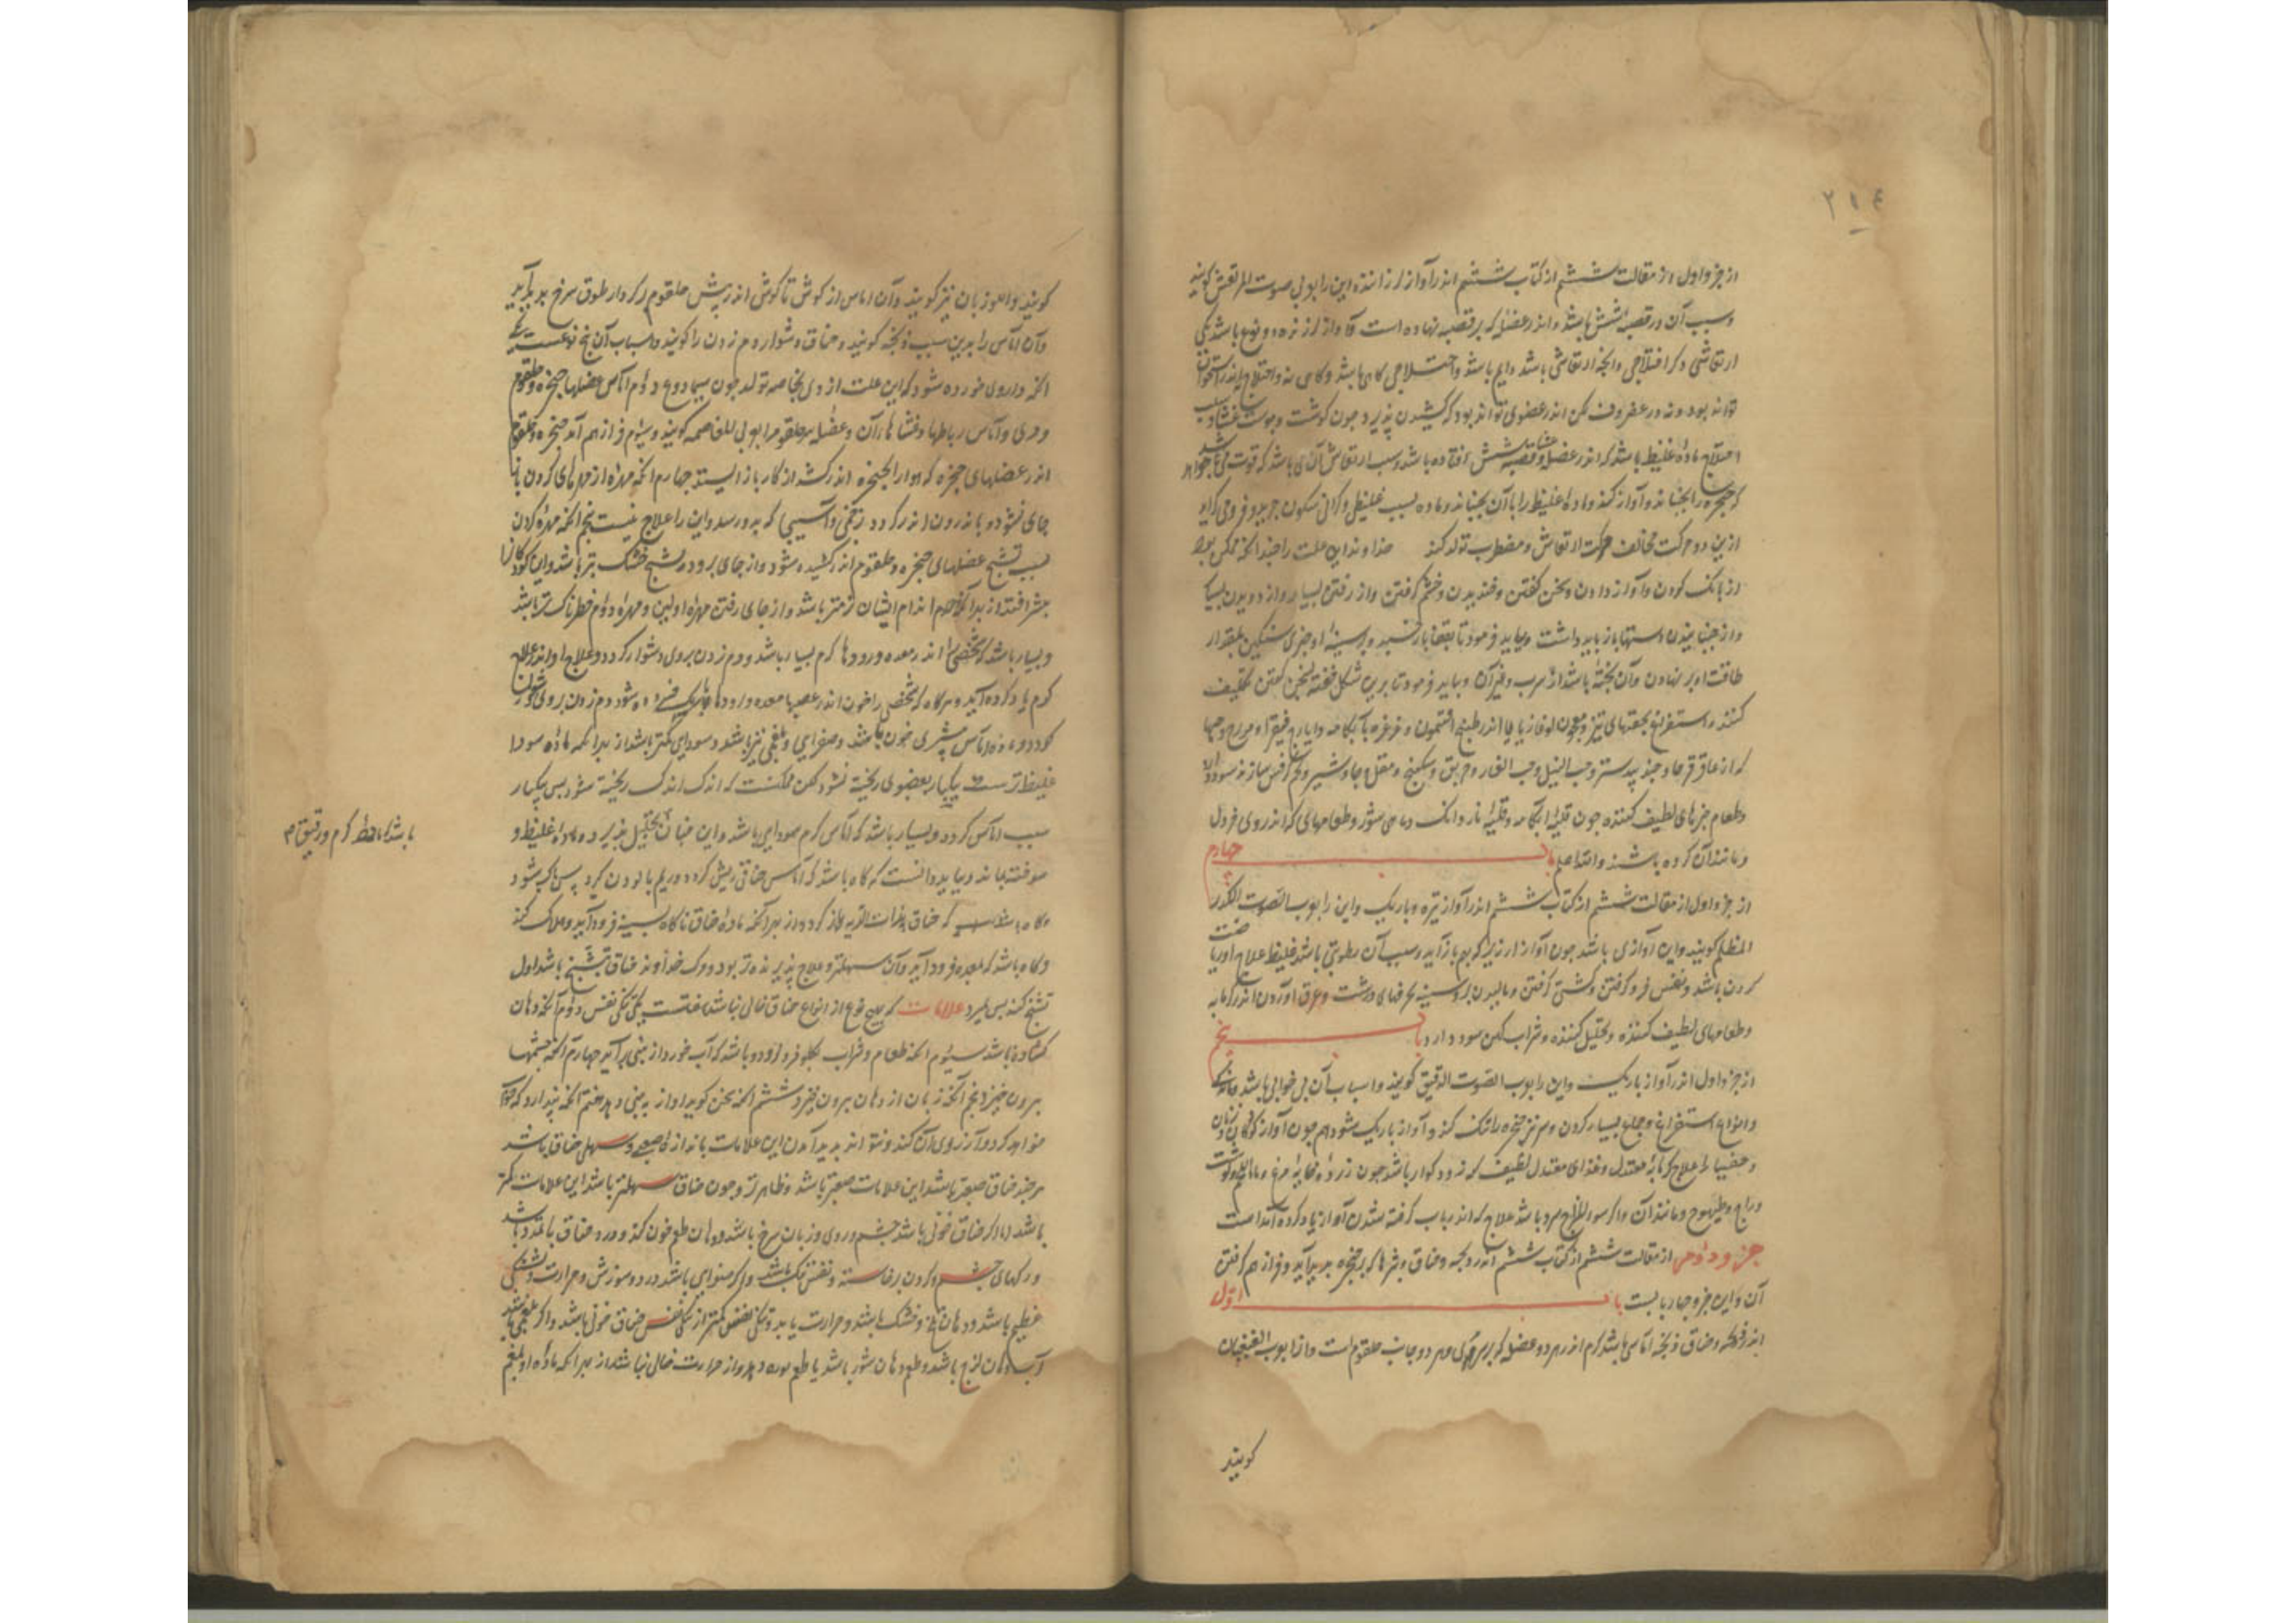 ۲۱۴
از جزو اول از مقالت ششم از کتاب ششم اندر آواز لرزاننده این را بوبی صوت المرتعش کویند
وسبب آن در قصبه شش باشد و اندر عضله که بر قصبه نهاده است و آواز لرزنده دو نوع باشد یکی
ارتعاشی و دکر اختلاجی و انچه ارتعاشی باشد دایم باشد و اختلاجی کاهی باشد و کاهی نه و اختلاج اندر استخوان
نتواند بود و نه در غضروف لکن اندر عضوی تواند بود که کشیدن پذیرد چون کوشت و پوست و غشا و سبب
اختلاج ماده غلیظ باشد که اندر عضله و غشاء قصبه شش افتاده باشد و سبب ارتعاش آن باشد که قوت می خواهد
که حنجره را بجنباند و آواز کند و ماده غلیظ را با آن بجنباند و ماده بسبب غلیظی و کرانی سکون جوید و فرو می کراید
ازین دو حرکت مخالف حرکت ارتعاش و مضطرب تولد کند خداوند این علت را چندانکه ممکن بود
از بانک کردن و آواز دادن و سخن کفتن و خندیدن و خشم کرفتن و از رفتن بسیار و از دویدن بسیار
و از جنبانیدن دستها باز باید داشت و بباید فرمود تا بقفا باز خسبد و بر سینه او چیزی سنکین بمقدار
طاقت او بر نهادن و آن تختهٔ باشد از سرب و غیر آن و بباید فرمود تا برین شکل خفته سخن کفتن تکلیف
کنند و استفراغ بحقنهای تیز و معجون لوغازیا یا اندر طبیخ افتیمون و غرغره بآبکامه و ایارج فیقرا و مویزج و حبها
که از عاقرقرحا و جند بیدستر و حب النیل و حب الغار و خربق و سکبینج و مقل و جاوشیر و تخم کرفس سازند سود دارد
و طعام چیزهای لطیف کننده چون قلیه آبکامه و قلیه ناردانک و ماهی شور و طعامهای که اندر وی خردل
و مانند آن کرده باشند والله اعلم باب چهارم
از جزو اول از مقالت ششم از کتاب ششم اندر آواز تیره و باریک و این را بوب الصوت الکدر
المظلم کویند و این آوازی باشد چون آواز ارزیز که بهم باز آید و سبب آن رطوبتی باشد غلیظ علاج او ریاضت
کردن باشد و نفس فرو کرفتن و کشتی کرفتن و مالیدن بر و سینه بخرقهای درشت و عرق آوردن اندر کرمابه
و طعامهای لطیف کننده و تحلیل کننده و شراب کهن سود دارد باب پنجم
از جزو اول اندر آواز باریک و این را بوب الصوت الدقیق کویند و اسباب آن بی خوابی باشد و ماندکی
و انواع استفراغ و جماع بسیار کردن و هر نیز حنجره را تنک کند و آواز باریک شود هم چون آواز کودکان و زنان
و خصیان علاج کرمابه معتدل و غذای معتدل لطیف که زود کوارد باشد چون زرده خایه مرغ و ماء اللحم و کوشت
دراج و طیهوج و مانند آن و اکر سوء المزاج سرد باشد علاج که اندر باب کرفته شدن آواز یاد کرده آمد است
جزو دوم از مقالت ششم از کتاب ششم اندر ذبحه و خناق و بثرها که بر حنجره پدید آید و فراز هم کرفتن
آن و این جزو چهار بابست باب اول
اندر ذبحه و خناق ذبحه آماسی باشد کرم اندر هر دو عضله که بر سر مری و هر دو جانب حلقوم است و آنرا بوب النغنغان
کویند
کویند و اللوزبان نیز کویند و آن اماس از کوش تا کوش اندر پیش حلقوم بر کردار طوق سرخ پدید آید
و آن آماس را بدین سبب ذبحه کویند و خناق دشوار دم زدن را کویند و اسباب آن پنج نوعست یکی
آنکه داروی خورده شود که این علت از وی بخاصه تولد چون سماروغ دوم آماس عضلها حنجره و حلقوم
و مری و آماس رباطها و غشاهاء آن و عضله سر حلقوم را بوبی الفاصمه کویند و سیوم فراز هم آمدن حنجره و حلقوم
اندر عضلهای حنجره که هوا را بحنجره اندر کشد از کار باز ایستد چهارم آنکه مهره از مهرهای کردن از
جای بشود و باندرون اندر کردد زخمی و آسیبی که بدو رسد و این را علاج نیست پنجم آنکه مهره کردن
بسبب تشنج عضلهای حنجره و حلقوم اندر کشیده شود و از جای برود و تشنج خشک بتر باشد و این کودکان را
بیشتر افتد از بهر آنکه اندام ایشان نرمتر باشد و از جای رفتن مهره اولین و مهره دوم خطرناک تر باشد
و بسیار باشد که شخصی را اندر معده و روده ها کرم بسیار باشد و دم زدن بر وی دشوار کردد و علاج او اندر علاج
کرم یاد کرده آید و هر کاه که شخصی را خون اندر عصبها معده و رودها باریک فسرده شود دم زدن بر وی دشوار
کردد و ماده آماس بیشتری خون باشد و صفرایی و بلغمی نیز باشد و سودای کمتر باشد از بهر آنکه ماده سودا
غلیظ تر است بیکبار بعضوی ریخته نشود لکن ممکنست که اندک اندک ریخته شود پس بیکبار
سبب آماس کردد و بسیار باشد که آماس کرم سودای باشد و این چنان تحلیل پذیرد و ماده غلیظ و
سوخته بماند و بباید دانست که کاه باشد که آماس خناقی ریش کردد و ریم پالودن کیرد پس پاک شود
و کاه باشد که خناق بذات الریه باز کردد از بهر آنکه ماده خناق ناکاه بسینه فرود آید و هلاک کند
و کاه باشد که بمعده فرود آید و آن سهلتر و علاج پذیرنده تر بود و مرک خداوند خناق بتشنج باشد اول
تشنج کند پس بمیرد علامات که هیچ نوع از انواع خناق خالی نباشد هفتست یکی تنکی نفس دوم آنکه دهان
کشاده باشد سیوم آنکه طعام و شراب بکلو فرو نرود و باشد که آب خورد از بینی برآید چهارم آنکه چشمها
بیرون خیزد پنجم آنکه زبان از دهان بیرون خیزد ششم آنکه سخن کوید آواز به بینی دهد هفتم آنکه پندارد که خواب
خواهد کرد و آرزوی آن کند و نتواند پدید آمدن این علامات باندازه صعبی و سهلی خناق باشد
هر چند خناق صعبتر باشد این علامات صعبتر باشد و ظاهرتر و چون خناق سهلتر باشد این علامات کمتر
باشد اما اکر خناق خونی باشد چشم و روی و زبان سرخ باشد و دهان طعم خون کند و درد خناق با تمدد باشد
و رکهای چشم و کردن برخاسته و نفس تنک باشد و اکر صفرای باشد درد و سوزش و حرارت و تشنکی
عظیم باشد و دهان تلخ و خشک باشد و حرارت یابد و تنکی نفس کمتر از تنکی نفس خناق خونی باشد و اکر بلغمی باشد
آب دهان لزج باشد و طعم دهان شور باشد یا طعم بوره دهد و از حرارت خالی نباشد از بهر آنکه ماده او بلغم
باشد کرم و رقیق